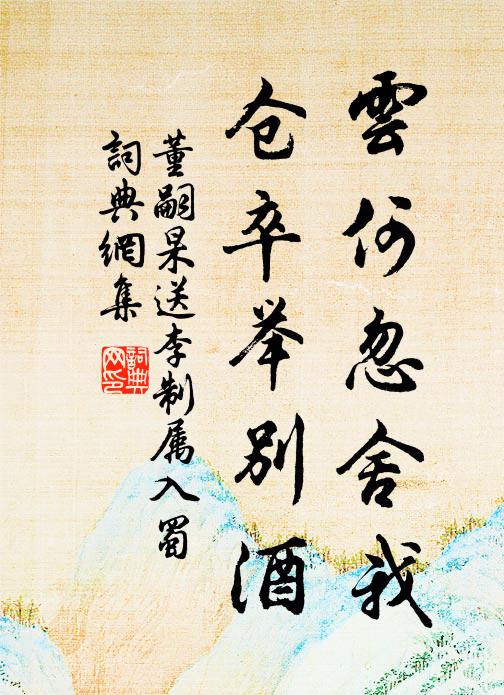 雲何忽舍我
仓卒举别酒
董嗣杲送李制属入蜀
詞典網集
詞典網印